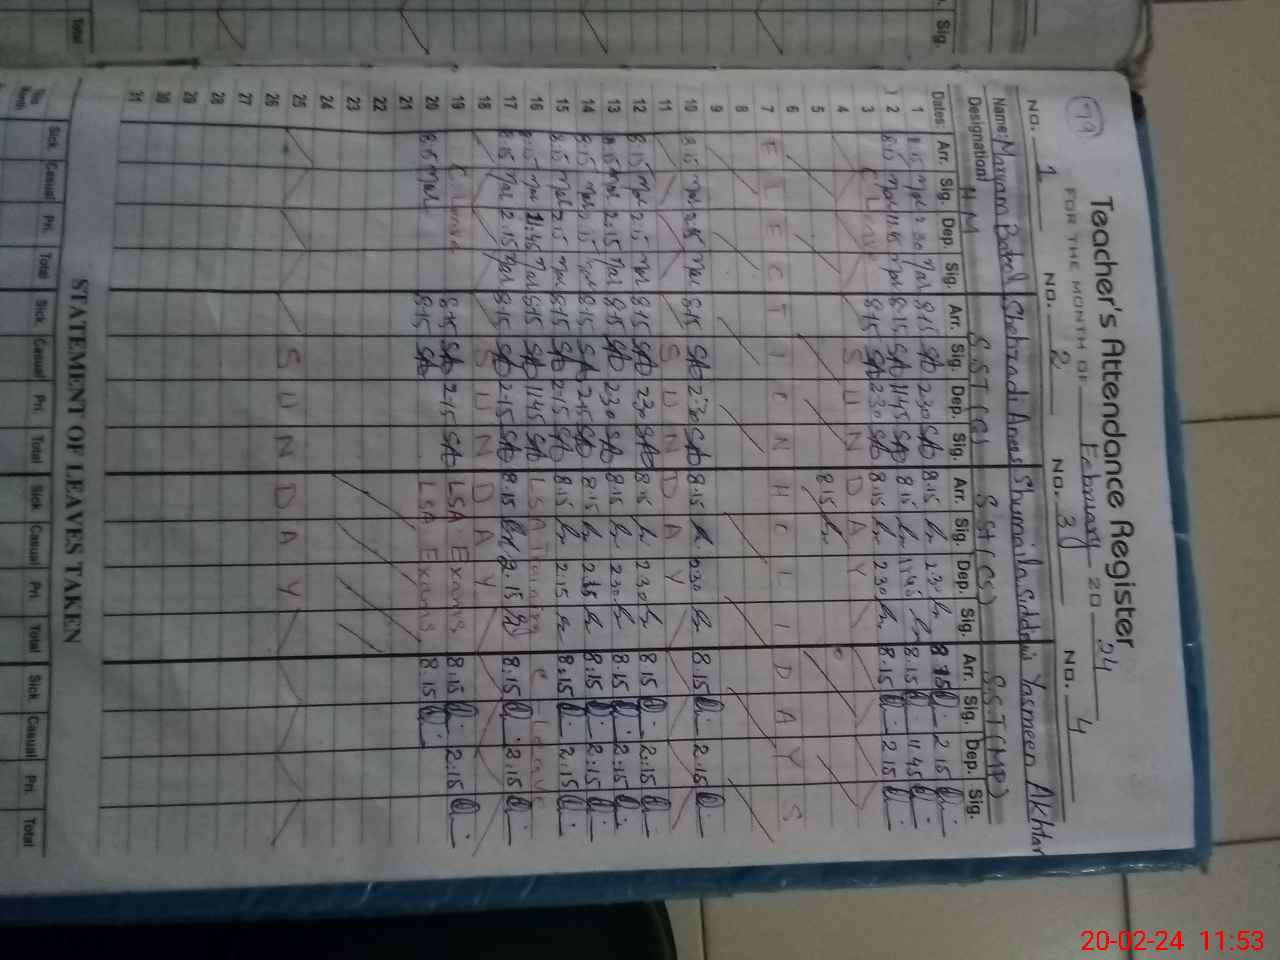 Total
Sig.
79
Teacher's Attendance Register
FOR THE MONTH OF February 20 24
No. 1 No. 2 No. 3 No. 4
Name: Maryam Batool Shehzadi Anees Shumaila Siddiqui Yasmeen Akhtar
Designation HM S.ST (G) S.ST (CS) S.S.T (MP)
Dates: Arr. Sig. Dep. Sig. Arr. Sig. Dep. Sig. Arr. Sig. Dep. Sig. Arr. Sig. Dep. Sig.
1 8:15 2:30 8:15 2:30 8:15 2:30 8:15 2:15
2 8:15 11:45 8:15 11:45 8:15 11:45 8:15 11:45
3 C Leave 8:15 2:30 8:15 2:30 8:15 2:15
4 SUNDAY
5 8:15
6
7 ELECTION HOLIDAYS
8
9
10 8:15 8:15 2:30 8:15 2:30 8:15 2:15
11 SUNDAY
12 8:15 2:15 8:15 2:30 8:15 2:30 8:15 2:15
13 8:15 2:15 8:15 2:30 8:15 2:30 8:15 2:15
14 8:15 2:15 8:15 2:15 8:15 8:15 2:15
15 8:15 2:15 8:15 2:15 8:15 2:15 8:15 2:15
16 8:15 11:45 8:15 11:45 LSA Training C Leave
17 8:15 2:15 8:15 2:15 8:15 2:15 8:15 2:15
18 SUNDAY
19 C Leave 8:15 2:15 LSA Exams 8:15 2:15
20 8:15 8:15 LSA Exams 8:15
21
22
23
24
25 SUNDAY
26
27
28
29
30
31
STATEMENT OF LEAVES TAKEN
Sick Casual Pri. Total Sick Casual Pri. Total Sick Casual Pri. Total Sick Casual Pri. Total
This Month
20-02-24 11:53